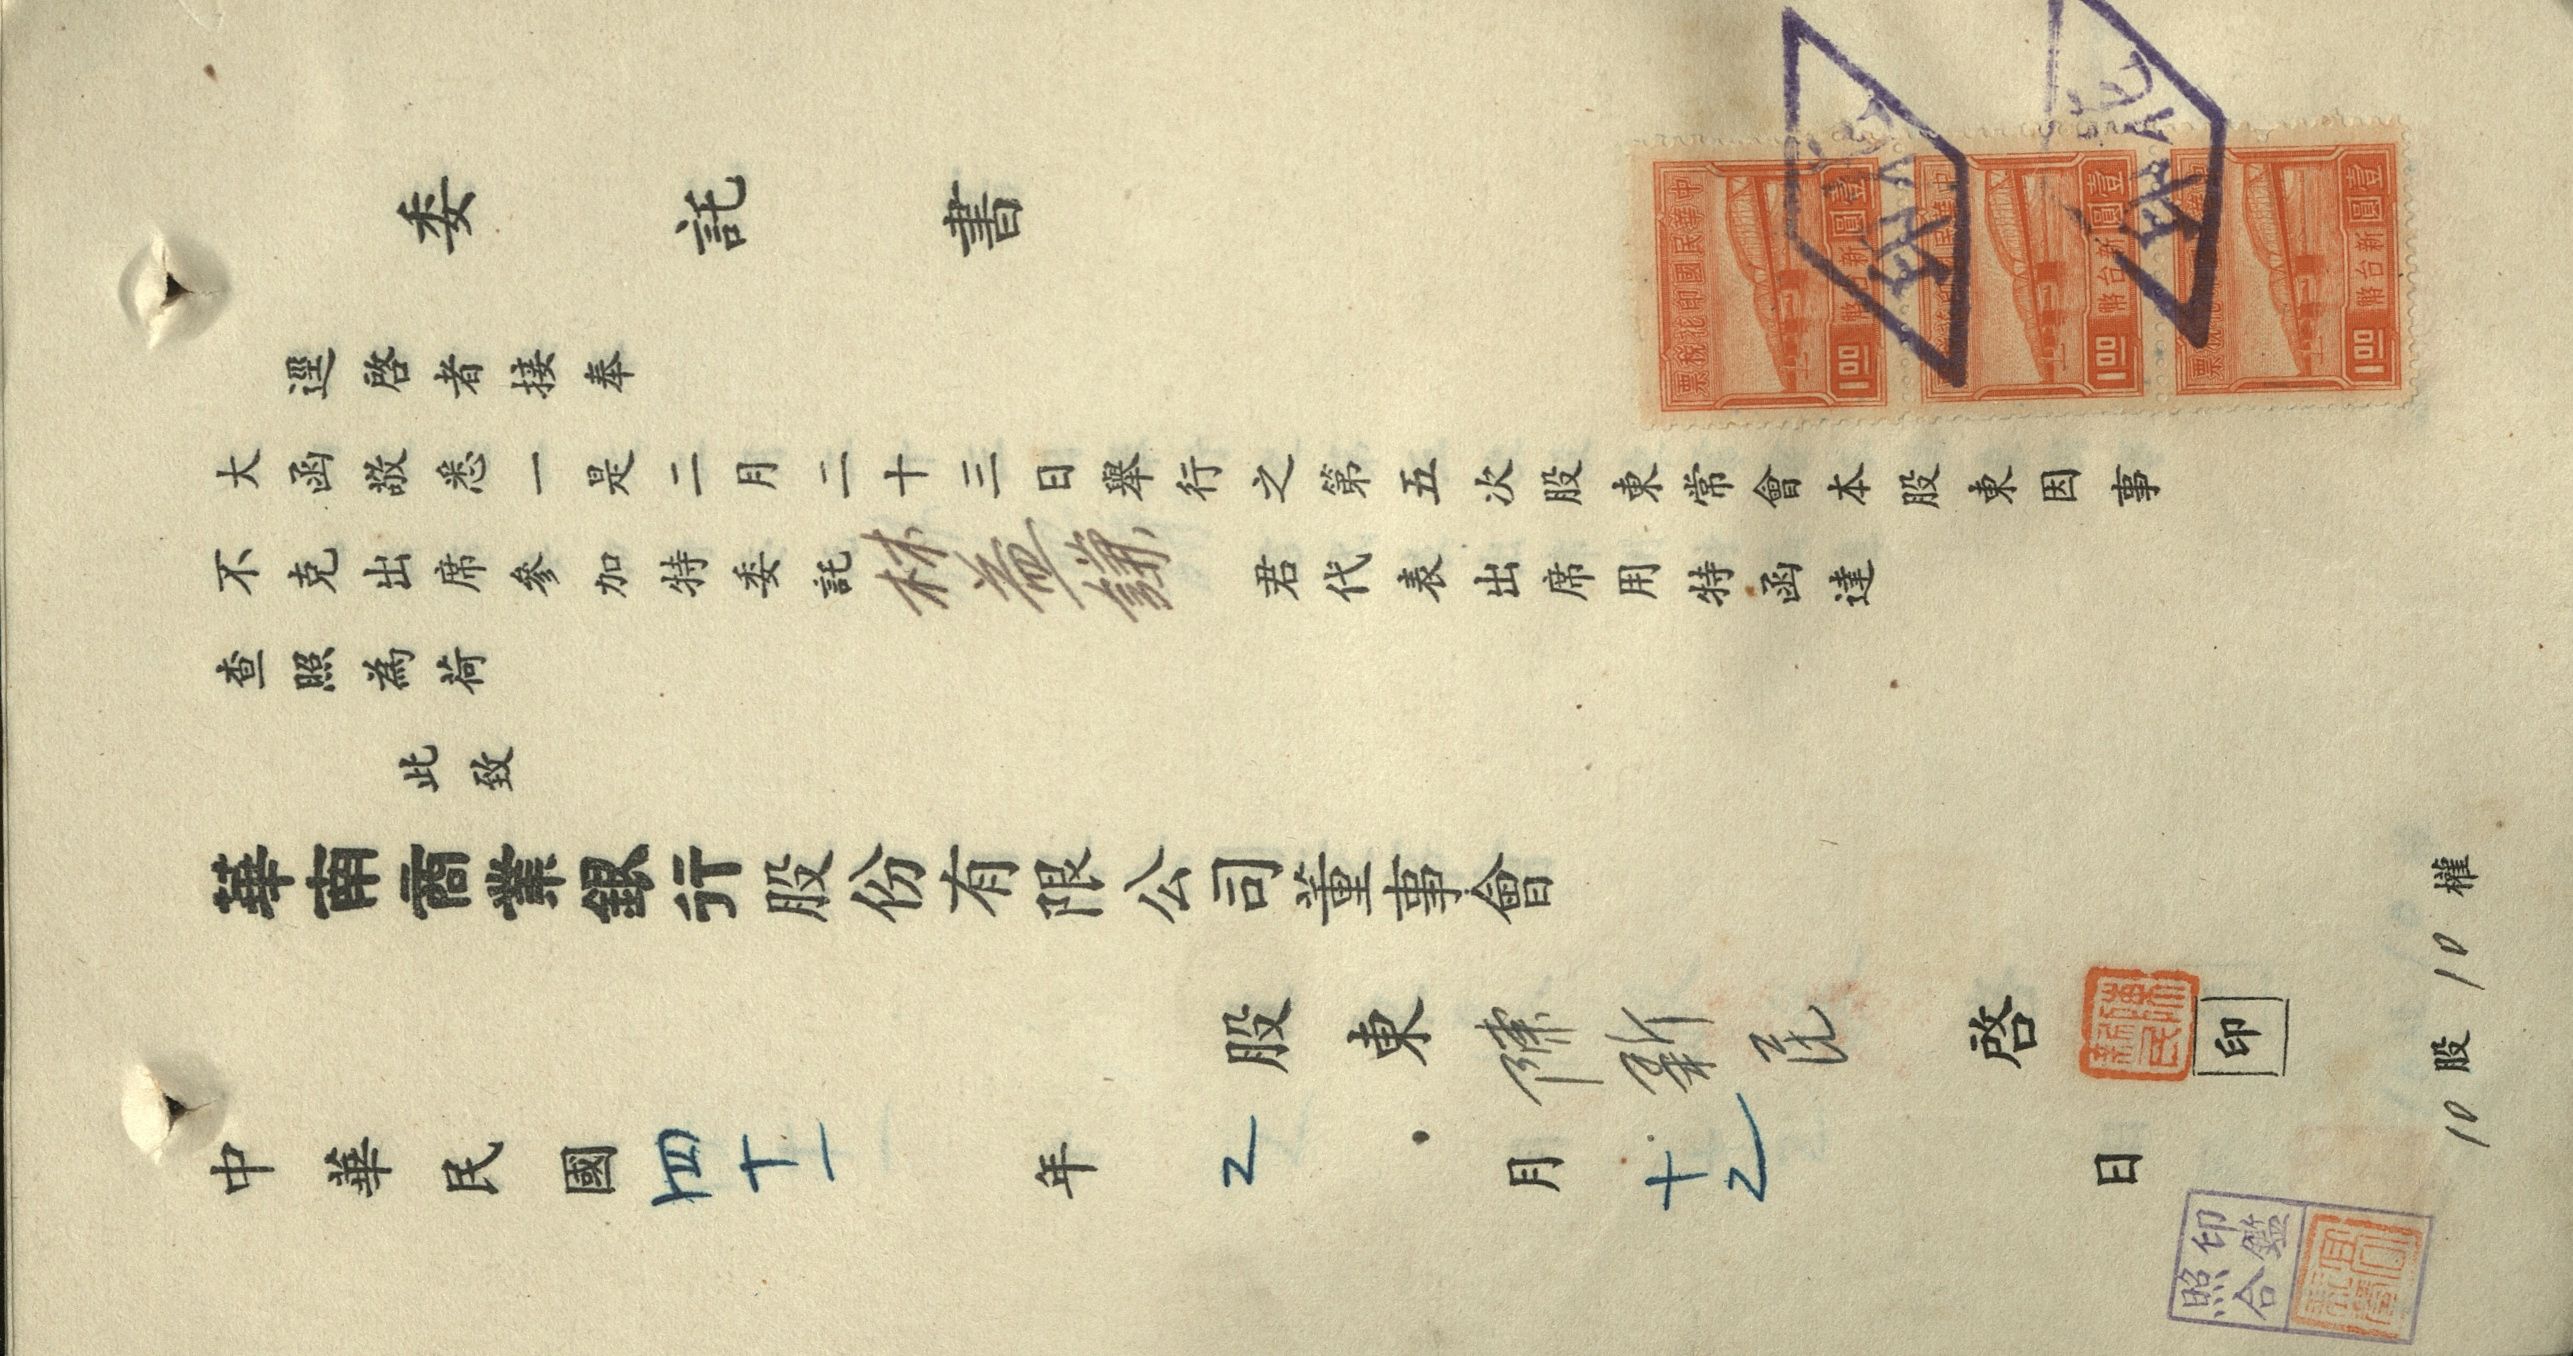 委託書
逕啓者接奉
大函敬悉一是二月二十三日舉行之第五次股東常會本股東因事
不克出席參加特委託林益謙君代表出席用特函達
查照為荷
此致
華南商業銀行股份有限公司董事會
股東陳新民啓
印
中華民國四十一年2月十2日
10股10權
印鑑
照合
中華民國印花稅票
壹圓
新台幣
1.00
壹圓
新台幣
1.00
壹圓
新台幣
1.00